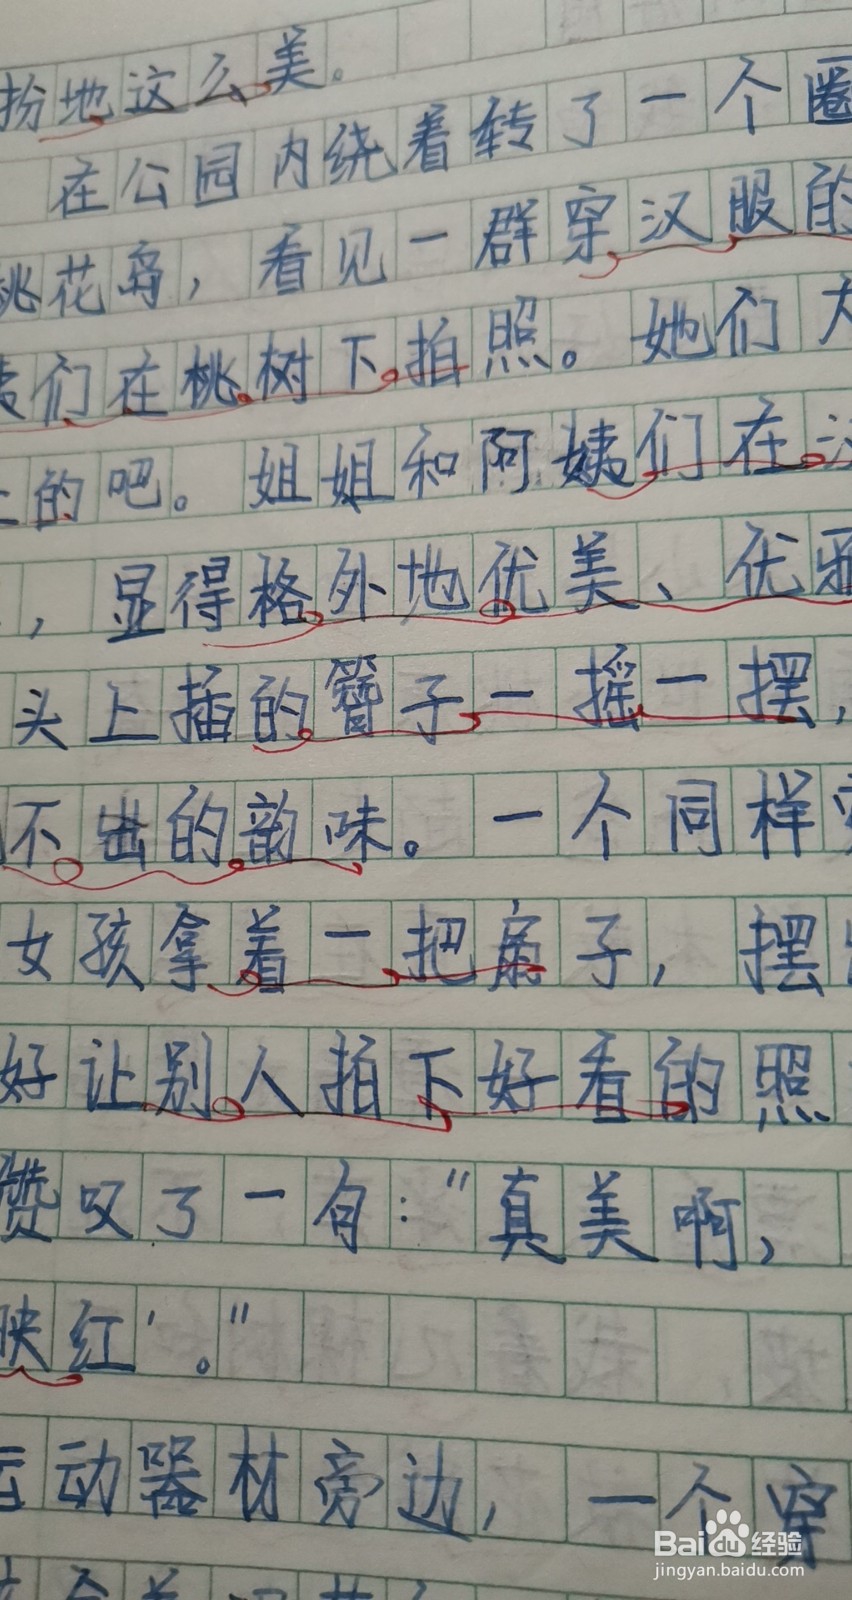 扮地这么美。
在公园内绕着转了一个圈
桃花岛，看见一群穿汉服的
们在桃树下拍照。她们大
的吧。姐姐和阿姨们在
，显得格外地优美、优雅
头上插的簪子一摇一摆，
不出的韵味。一个同样穿
女孩拿着一把扇子，摆
好让别人拍下好看的照
赞叹了一句：“真美啊，
映红’。”
运动器材旁边，一个穿
Baidu经验
jingyan.baidu.com